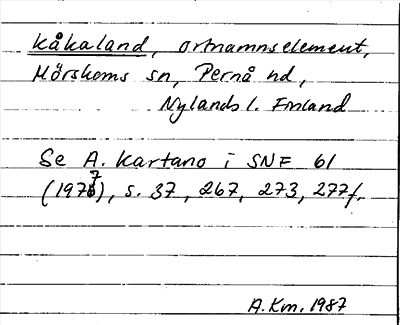 Kåkaland, ortnamnselement,
Mörskoms sn, Pernå hd,
Nylands l. Finland
Se A. Kartano i SNF 61
(1977), s. 37, 267, 273, 277f.
A.Km. 1987